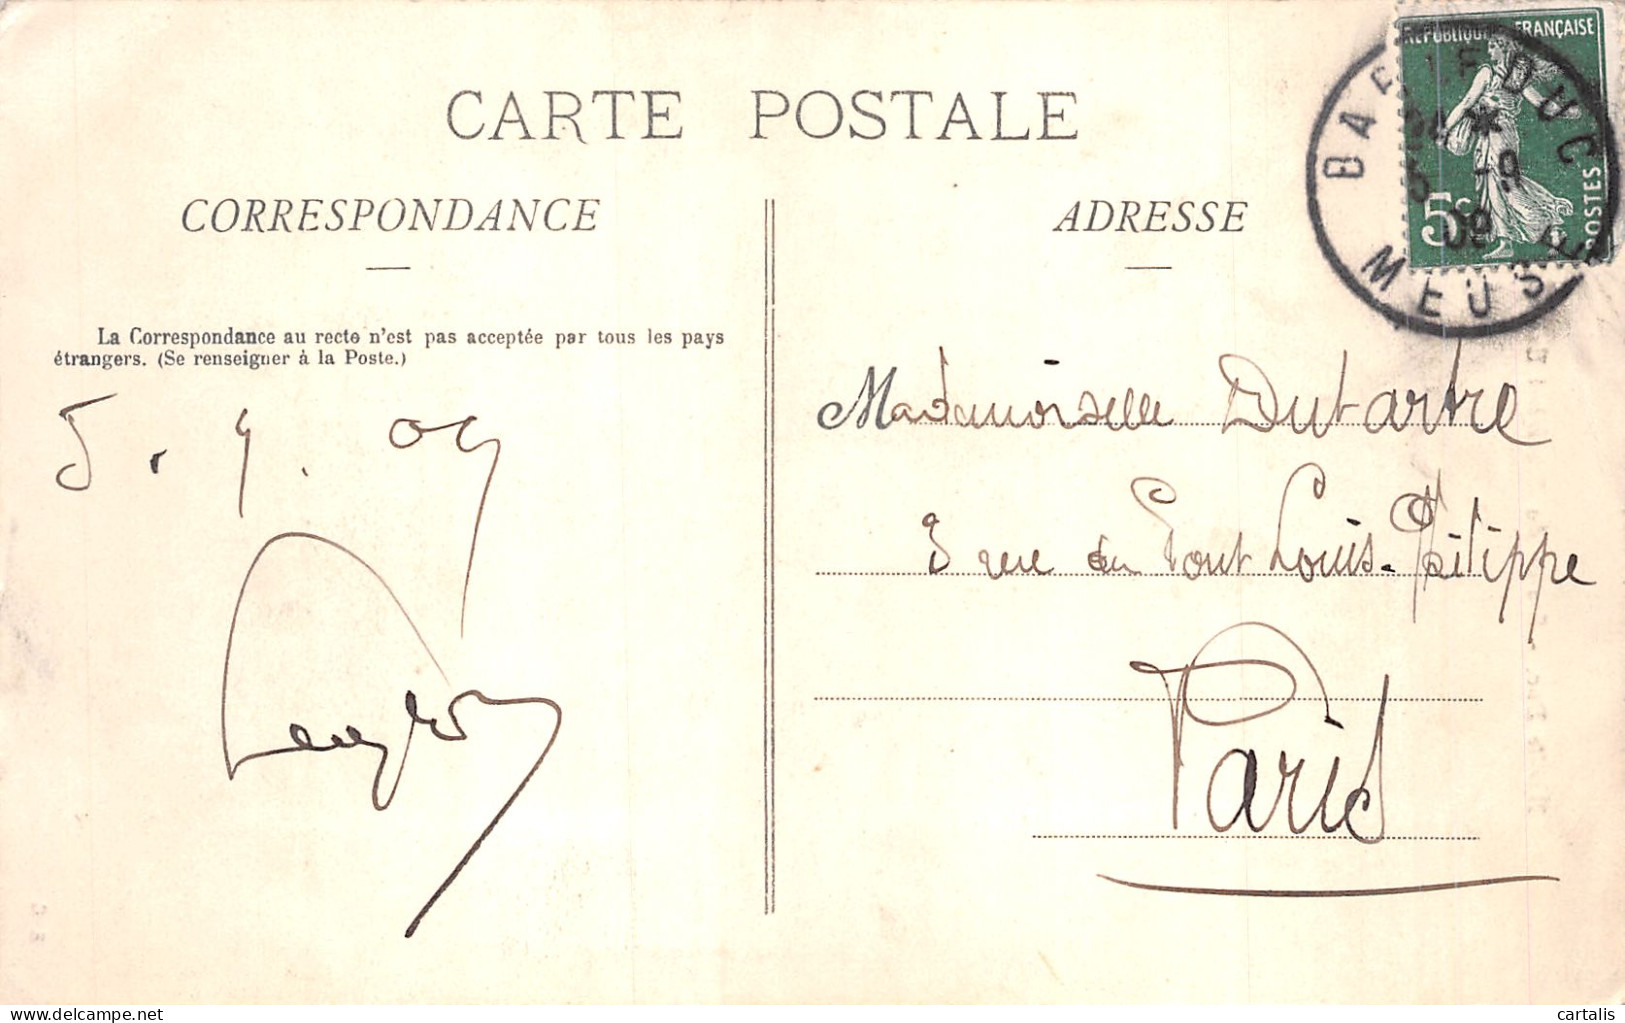 CARTE POSTALE
CORRESPONDANCE
La Correspondance au recto n'est pas acceptée par tous les pays
étrangers. (Se renseigner à la Poste.)
5. 9. 09
ADRESSE
RÉPUBLIQUE FRANÇAISE
5c
POSTES
BAR LE DUC
5 -9
09
MEUSE
Mademoiselle Dutartre
3 rue du Pont Louis-Philippe
Paris
delcampe.net
cartalis